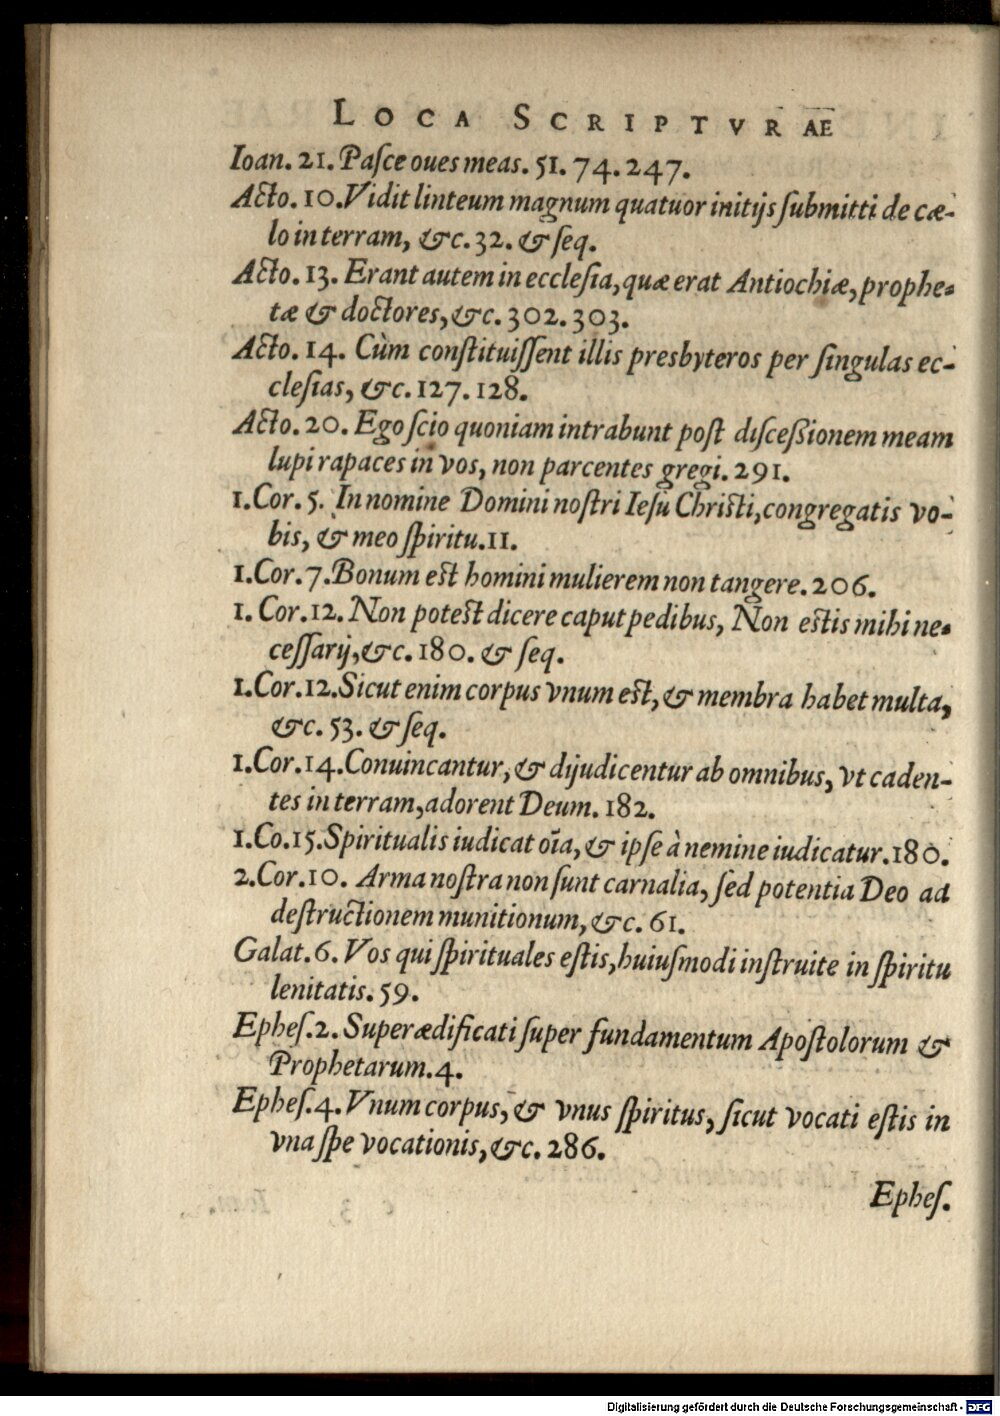 LOCA SCRIPTVRAE
Ioan. 21. Paſce oues meas. 51. 74. 247.
Acto. 10. Vidit linteum magnum quatuor initijs ſubmitti de cæ-
lo in terram, &c. 32. & ſeq.
Acto. 13. Erant autem in eccleſia, quæ erat Antiochiæ, prophe-
tæ & doctores, &c. 302. 303.
Acto. 14. Cùm conſtituiſſent illis presbyteros per ſingulas ec-
cleſias, &c. 127. 128.
Acto. 20. Ego ſcio quoniam intrabunt poſt diſceßionem meam
lupi rapaces in vos, non parcentes gregi. 291.
1. Cor. 5. In nomine Domini noſtri Ieſu Chriſti, congregatis vo-
bis, & meo ſpiritu. 11.
1. Cor. 7. Bonum eſt homini mulierem non tangere. 206.
1. Cor. 12. Non poteſt dicere caput pedibus, Non eſtis mihi ne-
ceſſarij, &c. 180. & ſeq.
1. Cor. 12. Sicut enim corpus vnum eſt, & membra habet multa,
&c. 53. & ſeq.
1. Cor. 14. Conuincantur, & dijudicentur ab omnibus, vt caden-
tes in terram, adorent Deum. 182.
1. Co. 15. Spiritualis iudicat oīa, & ipſe à nemine iudicatur. 180.
2. Cor. 10. Arma noſtra non ſunt carnalia, ſed potentia Deo ad
deſtructionem munitionum, &c. 61.
Galat. 6. Vos qui ſpirituales eſtis, huiuſmodi inſtruite in ſpiritu
lenitatis. 59.
Epheſ. 2. Superædificati ſuper fundamentum Apoſtolorum &
Prophetarum. 4.
Epheſ. 4. Vnum corpus, & vnus ſpiritus, ſicut vocati eſtis in
vna ſpe vocationis, &c. 286.
Epheſ.
Digitalisierung gefördert durch die Deutsche Forschungsgemeinschaft - DFG